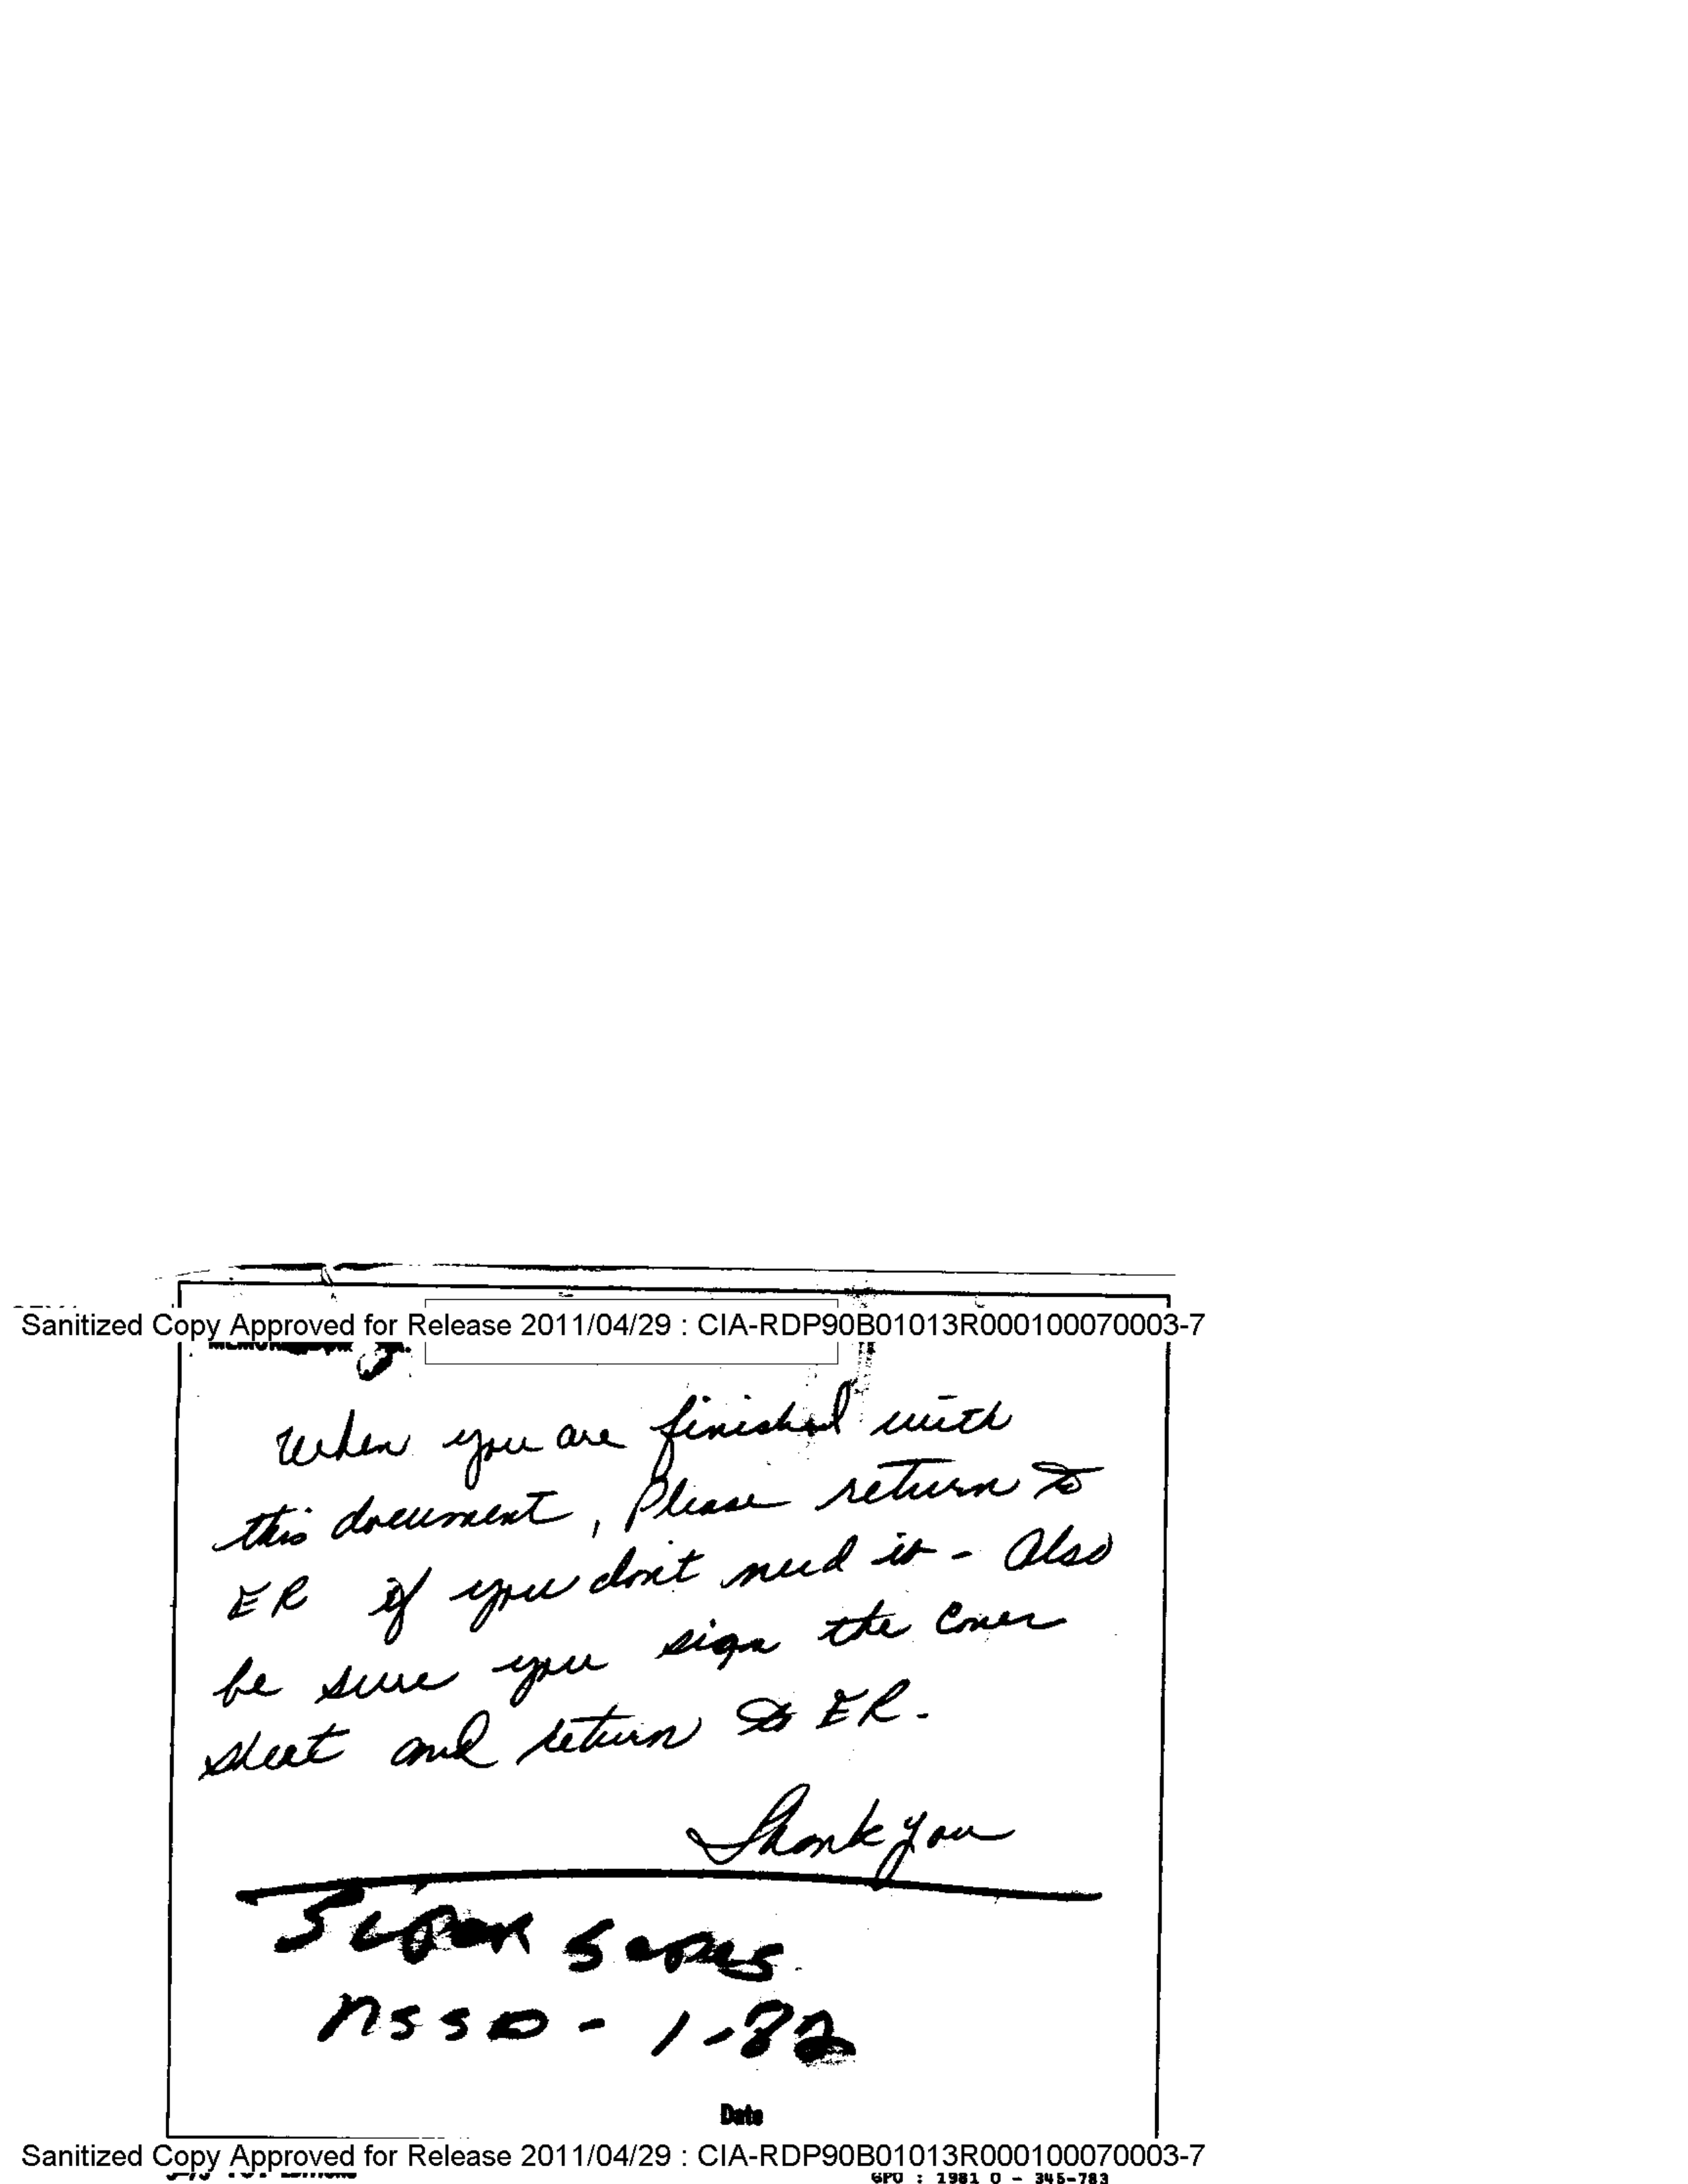 Sanitized Copy Approved for Release 2011/04/29 : CIA-RDP90B01013R000100070003-7
When you are finished with
this document, Please return to
ER if you don't need it - Also
be sure you sign the cover
sheet and return to ER.
Thank you
NSSD - 1-82
Date
Sanitized Copy Approved for Release 2011/04/29 : CIA-RDP90B01013R000100070003-7
GPO : 1981 O - 345-783